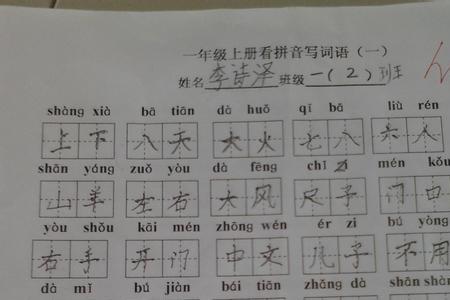 一年级上册看拼音写词语（一）
姓名 李诗泽 班级 一（2）班
shàng xià bā tiān dà huǒ qī bā liù rén
上下 八天 大火 七八 六人
shān yáng zuǒ yòu dà fēng chǐ zi mén kǒu
山羊 左右 大风 尺子 门口
yòu shǒu kāi mén zhōng wén ér zi bú yòng
右手 开门 中文 儿子 不用
dà mǐ bú jiàn bái tiān zhǎng dà shān